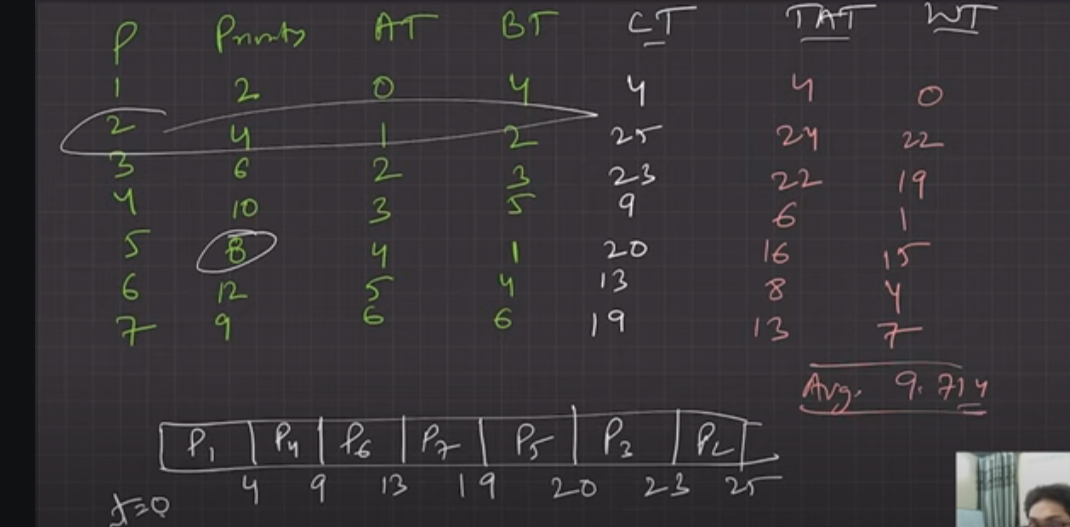 P Priority AT BT CT TAT WT
1 2 0 4 4 4 0
2 4 1 2 25 24 22
3 6 2 3 23 22 19
4 10 3 5 9 6 1
5 8 4 1 20 16 15
6 12 5 4 13 8 4
7 9 6 6 19 13 7
Avg. 9.714
P1 P4 P6 P7 P5 P3 P2
t=0 4 9 13 19 20 23 25